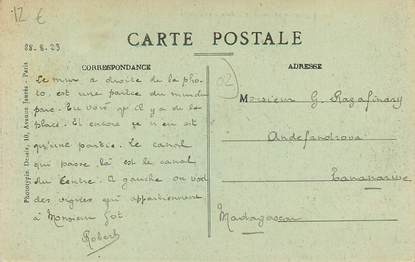 12 €
28.8.23
CARTE POSTALE
CORRESPONDANCE
ADRESSE
Le mur à droite de la pho-
to, est une partie du mur du
parc. Tu vois qu'il y a de la
place. Et encore ce n'en est
qu'une partie. Le canal
qui passe là est le canal
du Centre. A gauche on voit
des vignes qui appartiennent
à Monsieur Got
Robert
02
Monsieur G. Razafinary
Andefandrova
Tananarive
Madagascar
Phototypie Douée, 10, Avenue Jeanne - Paris